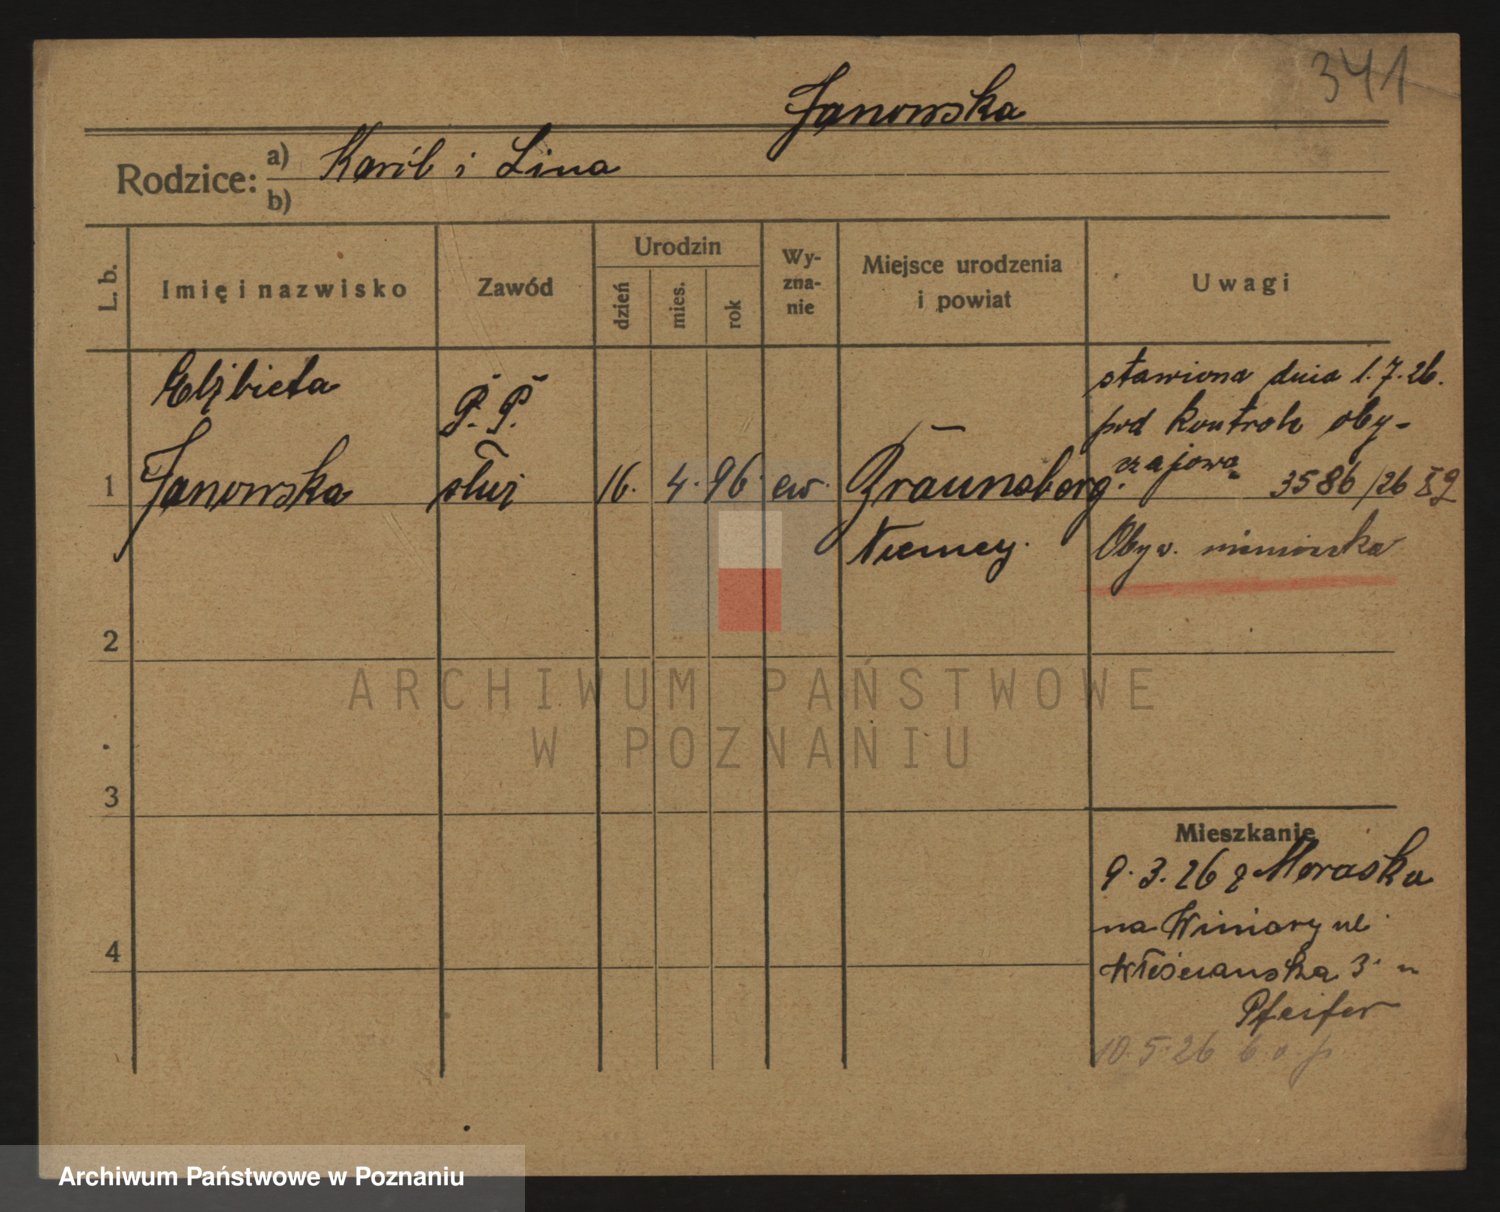 341
Janowska
Rodzice: a) Karól i Lina
b)
L. b. Imię i nazwisko Zawód Urodzin dzień mies. rok Wy-zna-nie Miejsce urodzenia i powiat Uwagi
Elżbieta P. P. stawiona dnia 1.7.26.
pod kontrolę oby-
czajową
1 Janowska służ 16. 4. 96. ew. Braunsberg. 3586/26
Niemcy. Obyw. niemiecka
2
3
Mieszkanie
9.3.26 z Moraska
na Winiary ul.
4
Włościańska 3
Pfeifer
10.5.26 b.o.p.
ARCHIWUM PAŃSTWOWE
W POZNANIU
Archiwum Państwowe w Poznaniu